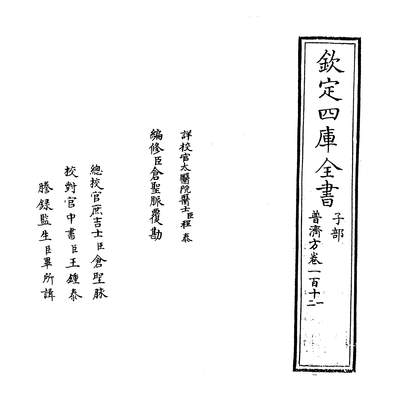 欽定四庫全書
子部
普濟方卷一百十一
二
詳校官太醫院醫士臣程泰
編修臣倉聖脈覆勘
總校官庶吉士臣倉聖脉
校對官中書臣王鍾泰
謄錄監生臣畢所講